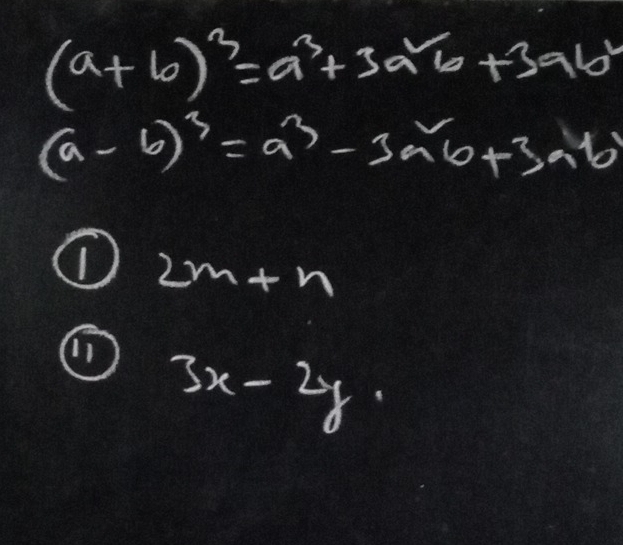 (a+b)³=a³+3a²b+3ab²
(a-b)³=a³-3a²b+3ab²
① 2m+n
⑪ 3x-2y.